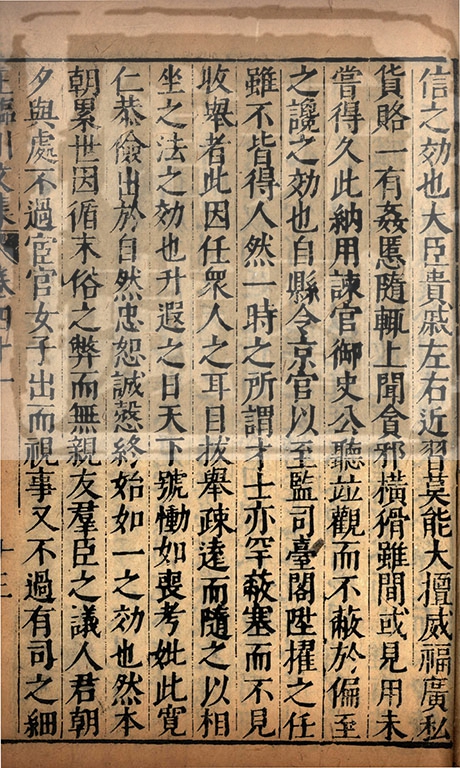 信之効也大臣貴戚左右近習莫能大擅威福廣私
貨賂一有姦慝隨輒上聞貪邪橫猾雖間或見用未
嘗得久此納用諫官御史公聽並觀而不蔽於偏至
之讒之効也自縣令京官以至監司臺閣陞擢之任
雖不皆得人然一時之所謂才士亦罕蔽塞而不見
收舉者此因任衆人之耳目拔舉疎逺而隨之以相
坐之法之効也升遐之日天下號慟如喪考妣此寛
仁恭儉出於自然忠恕誠慤終始如一之効也然本
朝累世因循末俗之弊而無親友羣臣之議人君朝
夕與處不過宦官女子出而視事又不過有司之細
臨川文集 卷四十一 十三